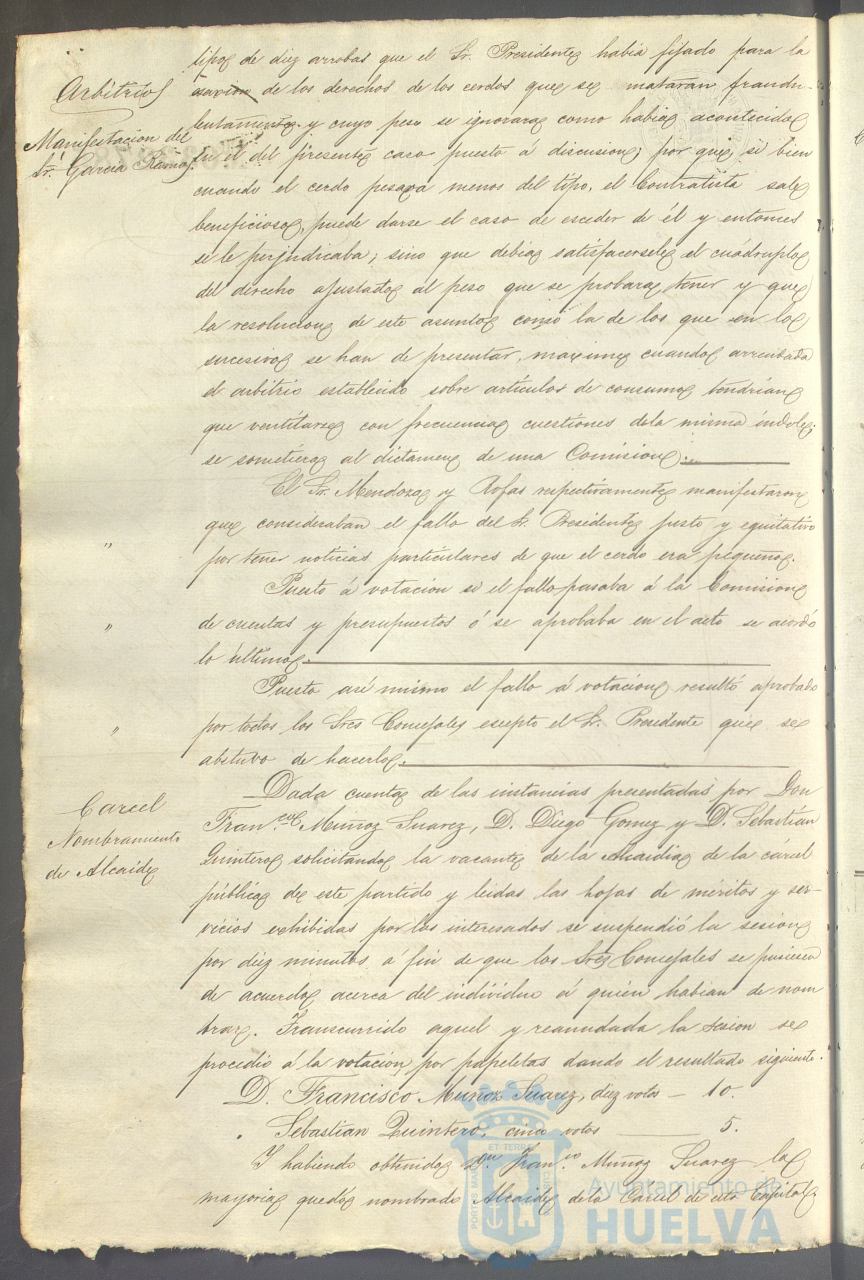 Arbitrios
Manifestacion del
Sr. Garcia Ramos.
tipo de diez arrobas que el Sr. Presidente habia fijado para la
de los derechos de los cerdos que se mataran fraudu-
lentamente y cuyo peso se ignorara como habia acontecido
en el del presente caso puesto á discusion; por que, si bien
cuando el cerdo pesara menos del tipo, el Contratista sale
beneficioso, puede darse el caso de esceder de él y entonces
se le perjudicaba; sino que debia satisfacersele el cuádruplo
del derecho ajustado al peso que se probara tener y que
la resolucion de este asunto como la de los que en lo
sucesivo se han de presentar, maxime cuando arrendada
el arbitrio establecido sobre articulos de consumo tendrian
que ventilarse con frecuencia cuestiones dela misma indole,
se sometiera al dictamen de una Comision.
El Sr. Mendoza y Rofas respectivamente manifestaron
que consideraban el fallo del Sr. Presidente justo y equitativo
"
por tener noticias particulares de que el cerdo era pequeño.
Puesto á votacion si el fallo pasaba á la Comision
"
de cuentas y presupuestos ó se aprobaba en el acto se acordó
lo último.
Puesto asi mismo el fallo á votacion resultó aprobado
"
por todos los Sres Concejales escepto el Sr. Presidente que se
abstubo de hacerlo.
Carcel
Nombramiento
de Alcaide
Dada cuenta de las instancias presentadas por Don
Fran.co Muñoz Suarez, D. Diego Gomez y D. Sebastian
Quintero solicitando la vacante de la Alcaidia de la cárcel
pública de este partido y leidas las hojas de méritos y ser-
vicios exhibidas por los interesados se suspendió la sesion
por diez minutos á fin de que los Sres Concejales se pusieran
de acuerdo acerca del individuo á quien habian de nom
brar. Transcurrido aquel y reanudada la sesion se
procedió á la votacion por papeletas dando el resultado siguiente.
D. Francisco Muñoz Suarez, diez votos — 10.
" Sebastian Quintero, cinco votos — 5.
Y habiendo obtenido Dn Fran.co Muñoz Suarez la
mayoria quedó nombrado Alcaide dela Carcel de esta Capital
Ayuntamiento de
HUELVA